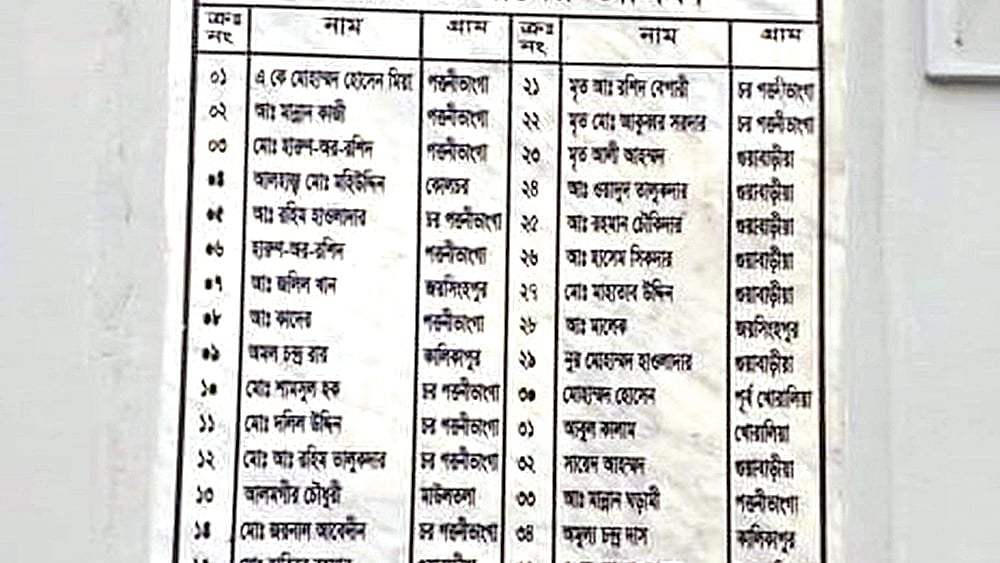 ক্রঃ নং নাম গ্রাম ক্রঃ নং নাম গ্রাম
০১ এ কে মোহাম্মদ হোসেন মিয়া পত্তনীভাংগা ২১ মৃত আঃ রশিদ বেপারী চর পত্তনীভাংগা
০২ আঃ মান্নান কাজী পত্তনীভাংগা ২২ মৃত মোঃ সরদার চর পত্তনীভাংগা
০৩ মোঃ হারুণ-অর-রশিদ পত্তনীভাংগা ২৩ মৃত আলী আহম্মদ গুয়াবাড়ীয়া
০৪ আলহাজ্ব মোঃ মহিউদ্দিন কোলচর ২৪ আঃ ওয়াদুদ তালুকদার গুয়াবাড়ীয়া
০৫ আঃ রহিম হাওলাদার চর পত্তনীভাংগা ২৫ আঃ রহমান চৌকিদার গুয়াবাড়ীয়া
০৬ হারুণ-অর-রশিদ পত্তনীভাংগা ২৬ আঃ হাসেম সিকদার গুয়াবাড়ীয়া
০৭ আঃ জলিল খান জয়সিংহপুর ২৭ মোঃ মাহাতাব উদ্দিন গুয়াবাড়ীয়া
০৮ আঃ কাদের পত্তনীভাংগা ২৮ আঃ মালেক জয়সিংহপুর
০৯ অমল চন্দ্র রায় কালিকাপুর ২৯ নুর মোহাম্মদ হাওলাদার গুয়াবাড়ীয়া
১০ মোঃ শামসুল হক চর পত্তনীভাংগা ৩০ মোহাম্মদ হোসেন পূর্ব খোরালিয়া
১১ মোঃ দলিল উদ্দিন চর পত্তনীভাংগা ৩১ আবুল কালাম খোরালিয়া
১২ মোঃ আঃ রহিম তালুকদার চর পত্তনীভাংগা ৩২ সায়েদ আহম্মদ গুয়াবাড়ীয়া
১৩ আলমগীর চৌধুরী মাউলতলা ৩৩ আঃ মান্নান ঘড়ামী পত্তনীভাংগা
১৪ মোঃ জয়নাল আবেদীন চর পত্তনীভাংগা ৩৪ অমুল্য চন্দ্র দাস কালিকাপুর